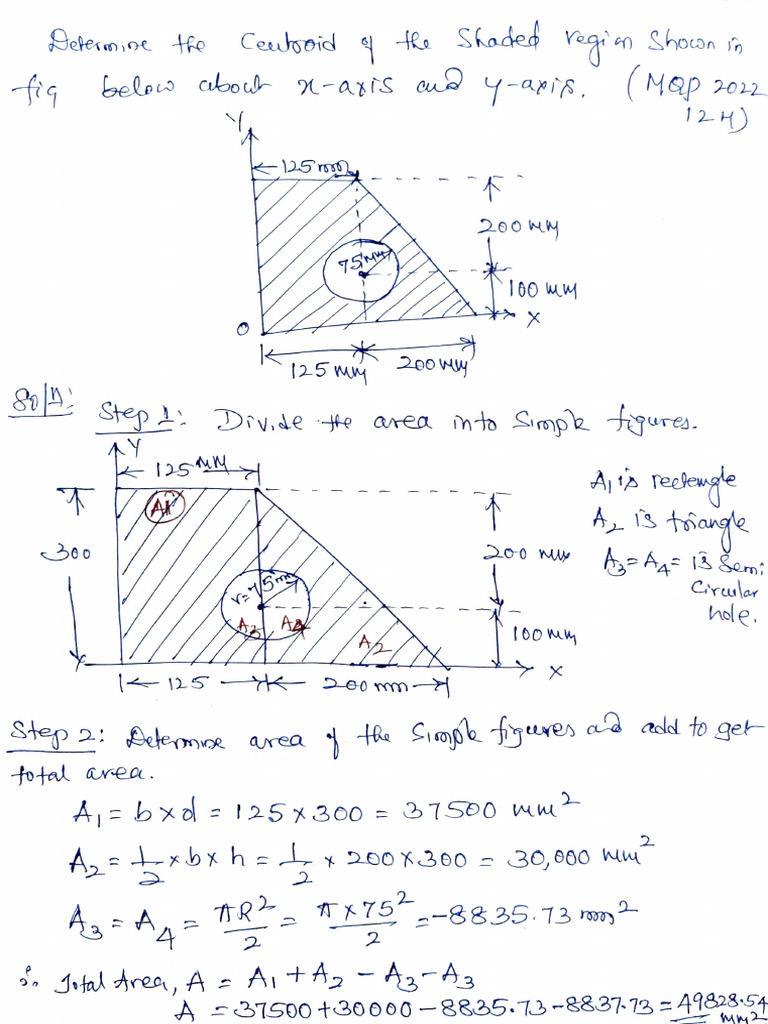 Determine the Centroid of the Shaded region Shown in
fig below about x-axis and y-axis. (MQP 2022
12M)
Y
125 mm
200 mm
75 mm
100 mm
O
X
125 mm
200 mm
Soln:
Step 1: Divide the area into Simple figures.
Y
125 MM
A1
A1 is rectangle
A2 is triangle
A3 = A4 = is Semi
Circular
hole.
300
200 mm
r=75mm
A3
A4
A2
100 mm
X
125
200 mm
Step 2: Determine area of the Simple figures and add to get
total area.
A1 = b × d = 125 × 300 = 37500 mm²
A2 = 1/2 × b × h = 1/2 × 200 × 300 = 30,000 mm²
A3 = A4 = πR²/2 = π × 75²/2 = -8835.73 mm²
∴ Total Area, A = A1 + A2 - A3 - A3
A = 37500 + 30000 - 8835.73 - 8837.73 = 49828.54
mm²